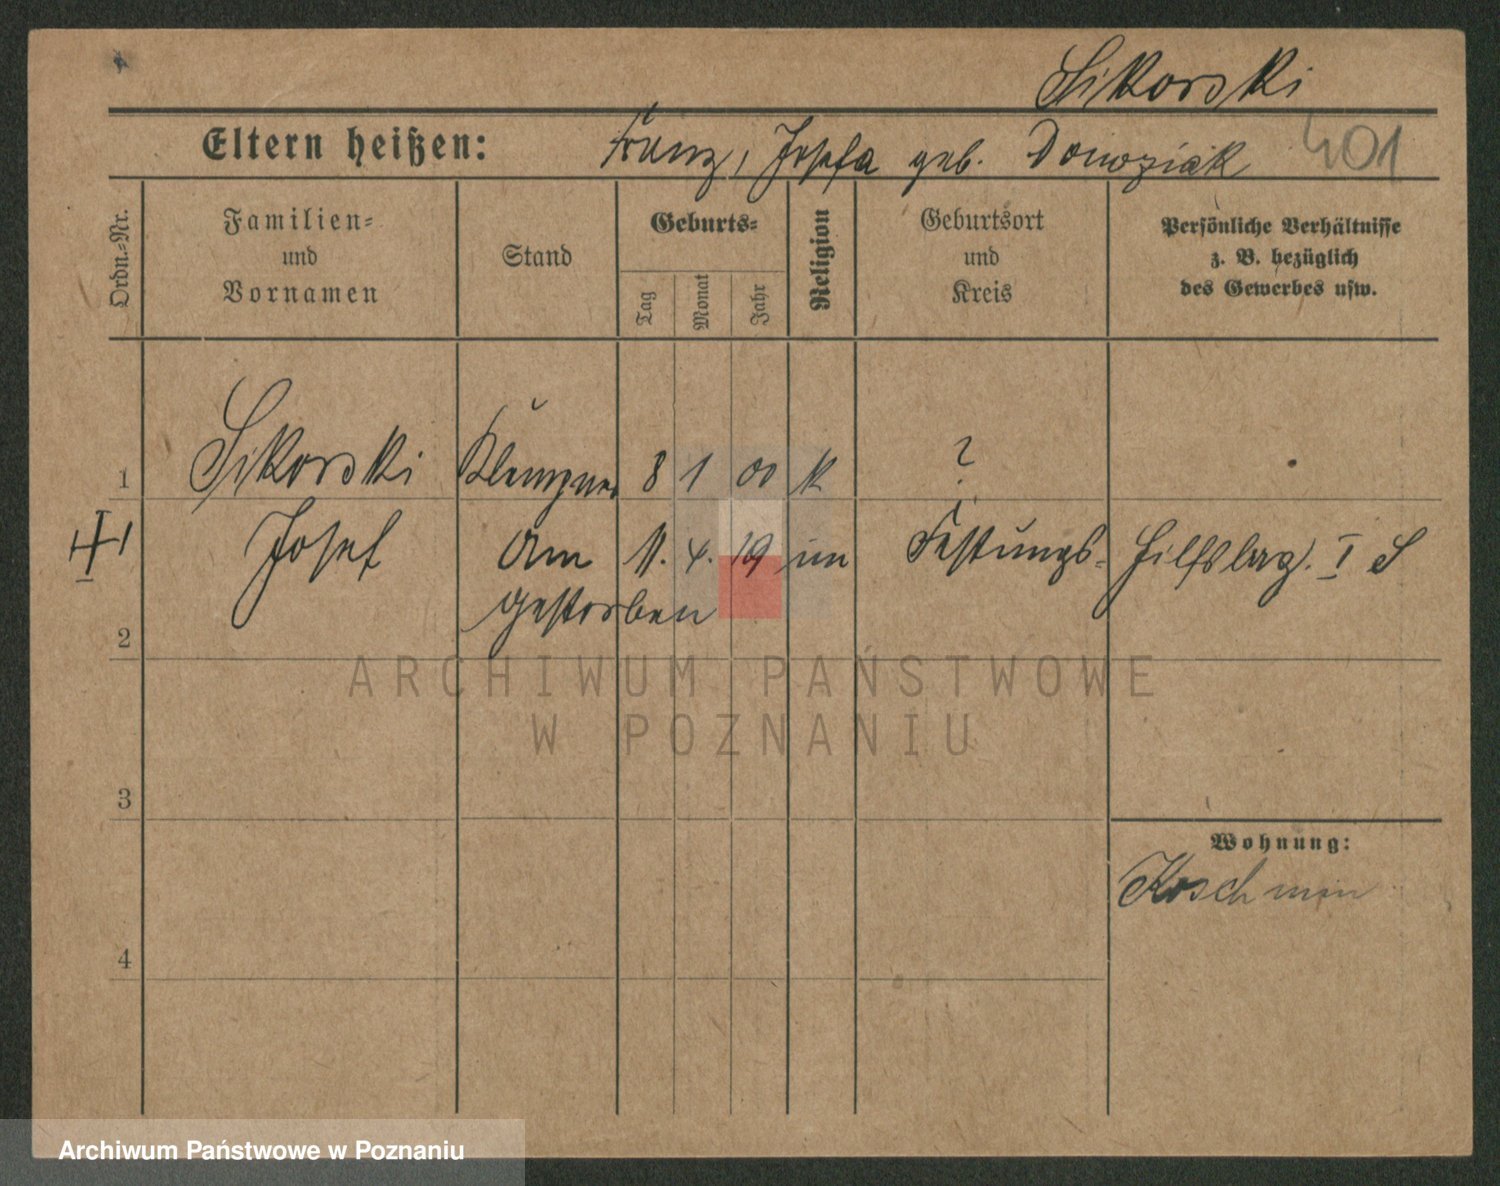 Sikorski
Eltern heißen: Franz, Josefa geb. Donoziak 401
Ordn.-Nr.
Familien-
und
Vornamen
Stand
Geburts-
Tag
Monat
Jahr
Religion
Geburtsort
und
Kreis
Persönliche Verhältnisse
z. B. bezüglich
des Gewerbes usw.
1 Sikorski Klempner 8 1 00 K ?
Josef Am 11. 4. 19 im Festungs- Hilfslag. I S
gestorben
2
ARCHIWUM PAŃSTWOWE
W POZNANIU
3
Wohnung:
Koschmin
4
Archiwum Państwowe w Poznaniu